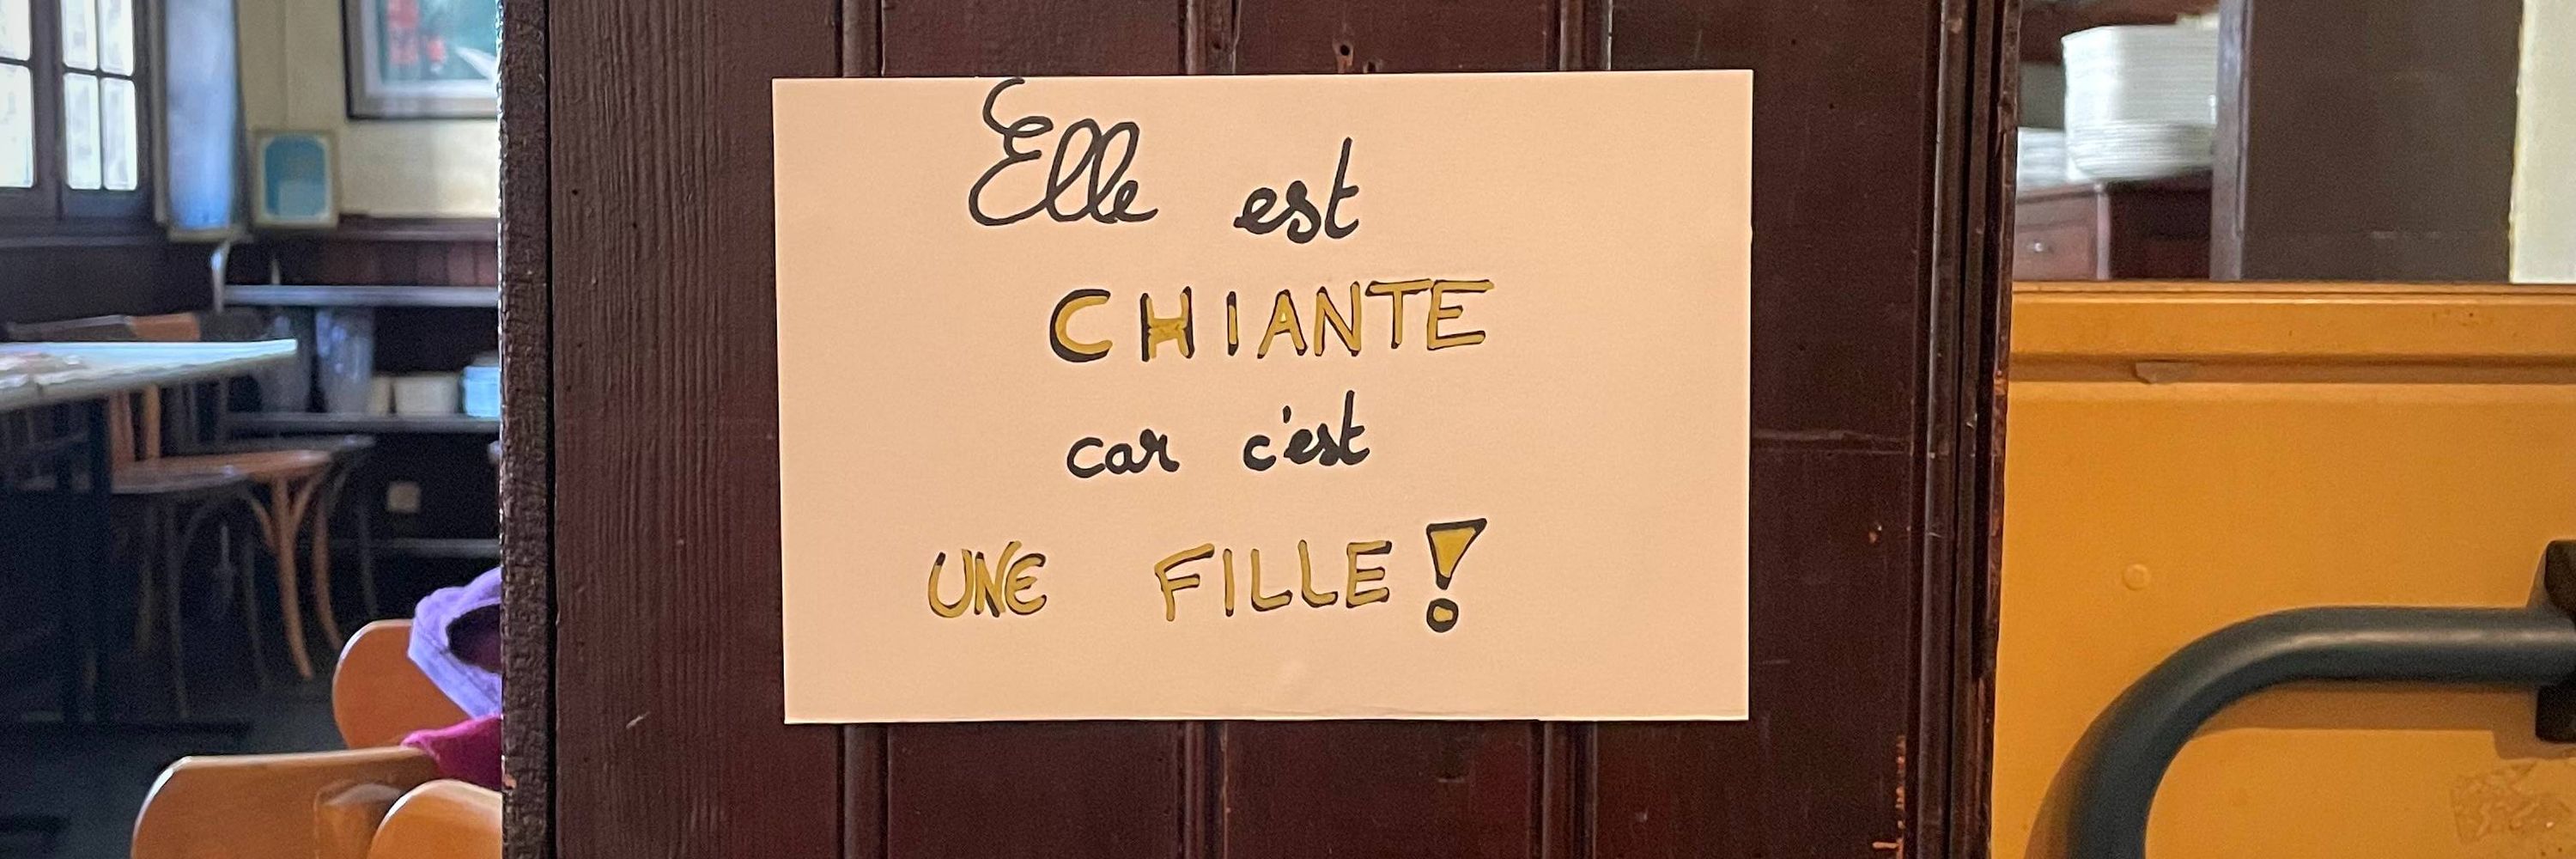 Elle est
CHIANTE
car c'est
UNE FILLE!